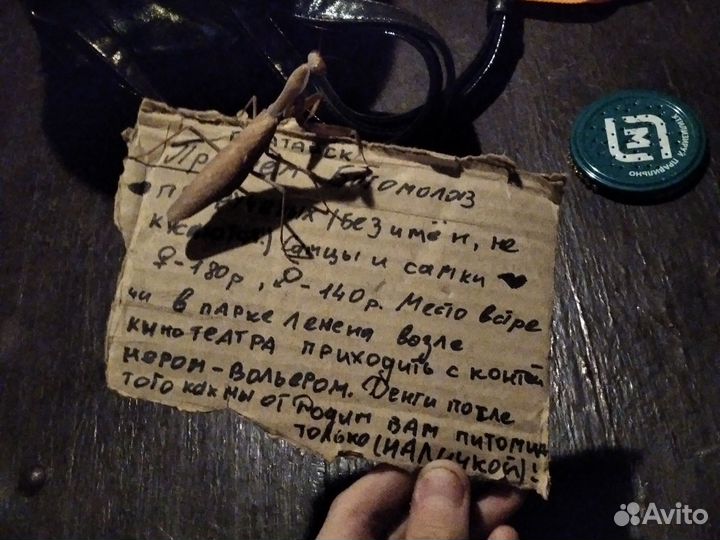 Богомолов
без имён, не
самцы и самки
♀-180р, ♂-140р. Место встре
чи в парке Ленена возле
кинотеатра приходить с контей
нером-вольером. Денги после
того как мы отдодим вам питомца
только (наличкой)!
М
ПРАВИЛЬНО
Avito